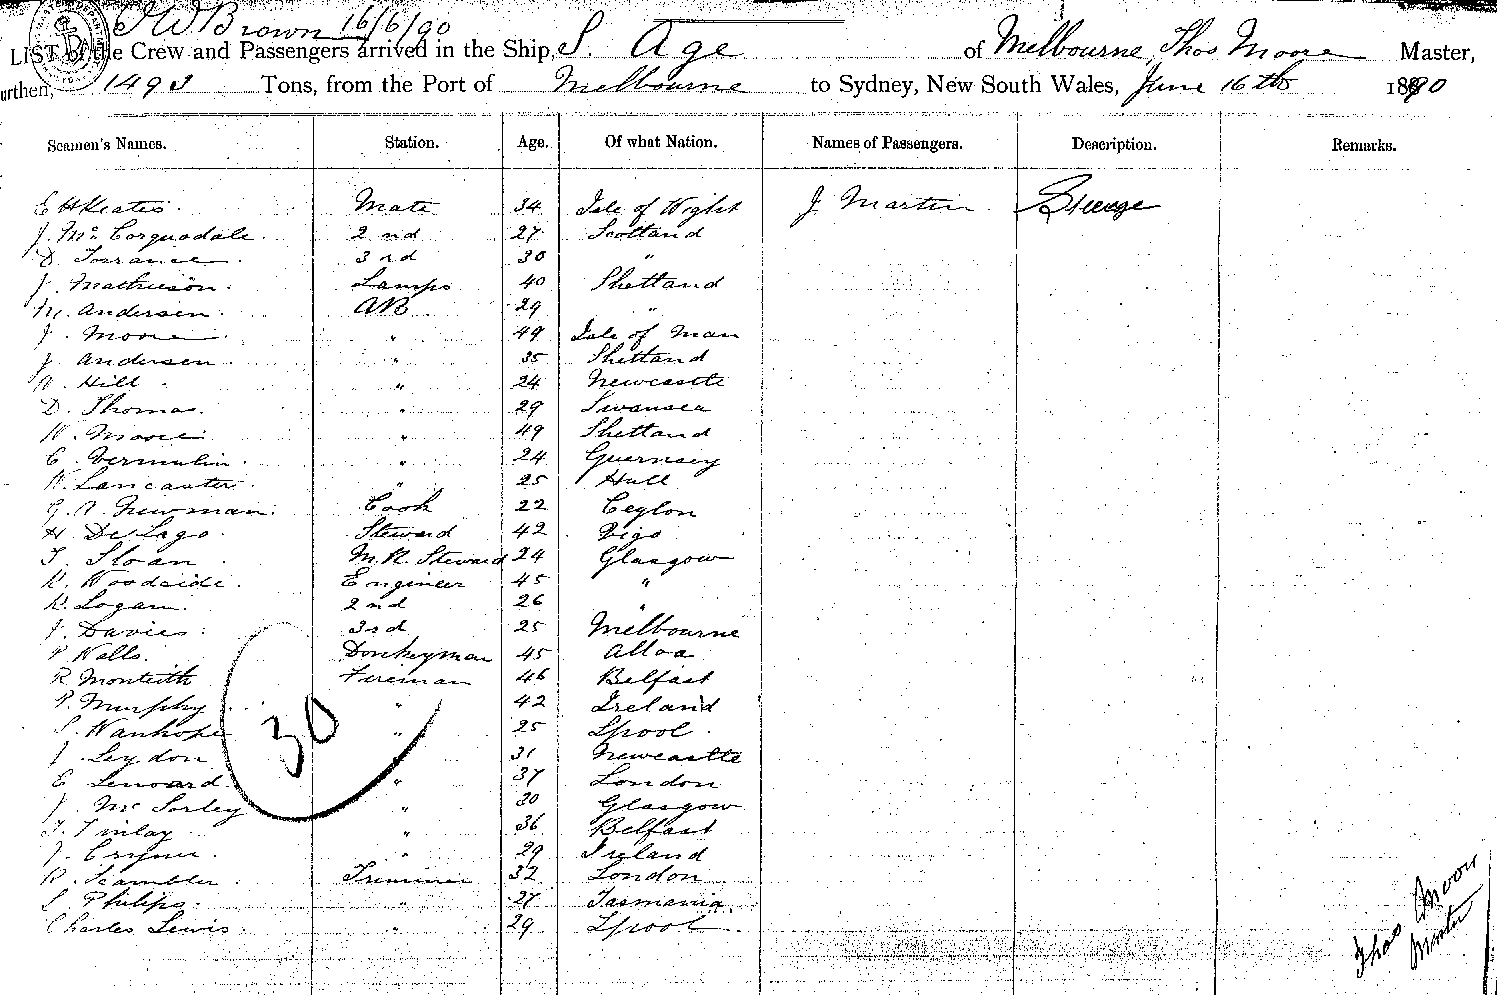 J W Brown 16/6/90
LIST of the Crew and Passengers arrived in the Ship, S. Age of Melbourne, Thos Moore Master,
urthen, 1493 Tons, from the Port of Melbourne to Sydney, New South Wales, June 16th 1890
Seamen's Names. Station. Age. Of what Nation. Names of Passengers. Description. Remarks.
E H Keates Mate 34 Isle of Wight J. Martin
J. Mc Corquodale 2nd 27 Scotland
D Torrance 3rd 30 "
J. Mathieson Lamps 40 Shetland
M. Andersen AB 29 "
J. Moore " 49 Isle of Man
J. Andersen " 35 Shetland
W. Hill " 24 Newcastle
D. Thomas " 29 Swansea
W. Moore " 49 Shetland
C. Vermulin " 24 Guernsey
W. Lancaster " 25 Hull
G. A. Newman Cook 22 Ceylon
H. De Lago Steward 42 Vigo
T. Sloan M.R. Steward 24 Glasgow
W. Woodside Engineer 45 "
W. Logan 2nd 26 "
J. Davies 3rd 25 Melbourne
P. Wells Donkeyman 45 Alloa
R Monteith Fireman 46 Belfast
P. Murphy " 42 Ireland
S. Wanhope " 25 Lpool
J. Leydon " 31 Newcastle
E Lenoard " 37 London
J. Mc Sorley " 30 Glasgow
T. Finlay " 36 Belfast
J. " 29 Ireland
R. Scambler Trimmer 32 London
S Philips " 27 Tasmania
Charles Lewis " 29 Lpool
30
Thos Moore
Master